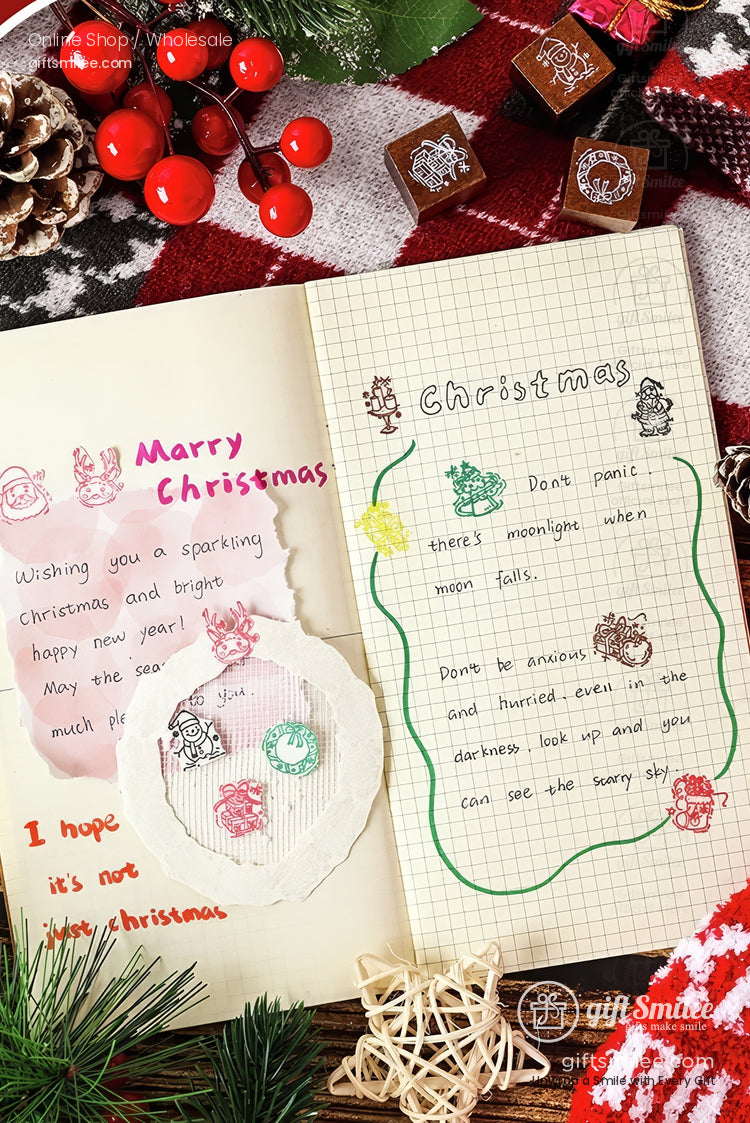 Online Shop / Wholesale
giftsmilee.com
Marry
Christmas
Wishing you a sparkling
Christmas and bright
happy new year!
May the
much
to you.
I hope
it's not
just christmas
Christmas
Don't panic.
there's moonlight when
moon falls.
Don't be anxious
and hurried. even in the
darkness, look up and you
can see the starry sky.
gift Smilee
gifts make smile
giftsmilee.com
a Smile with Every Gift